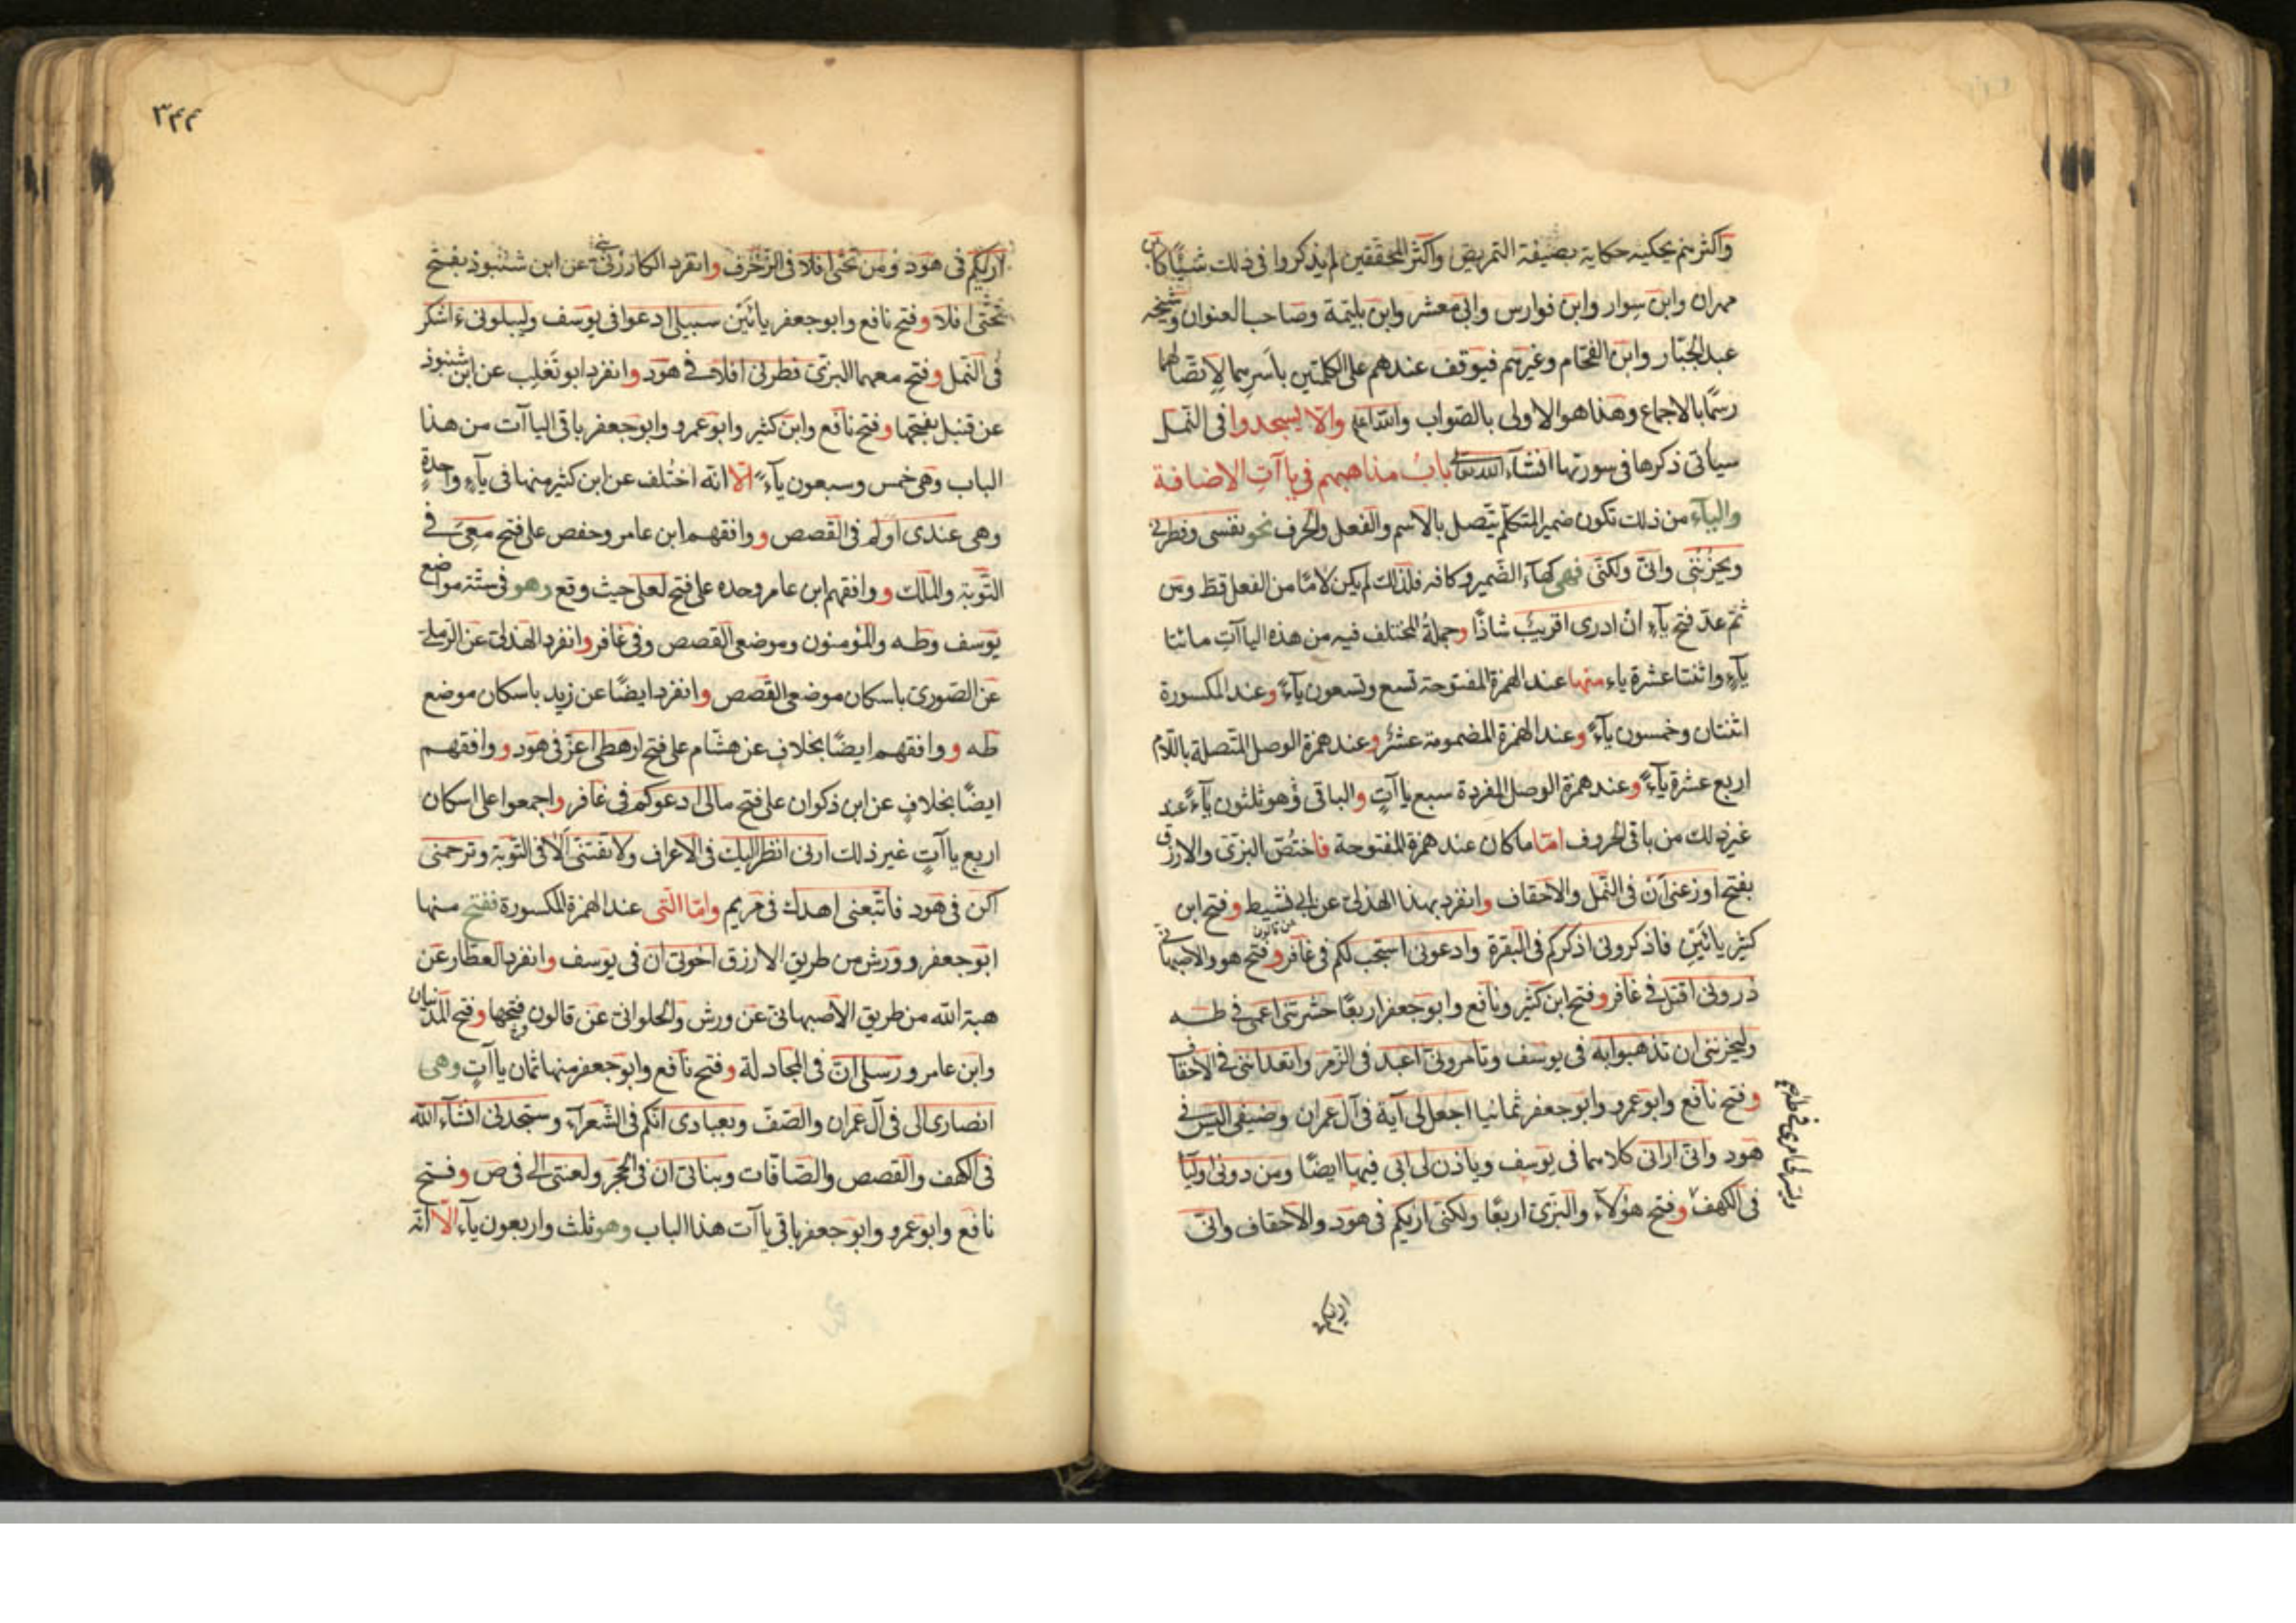 واكثرهم يحكيه حكاية بصيغة التمريض واكثر المحققين لم يذكروا فى ذلك شيئًا كابن
مهران وابن سوار وابن فوارس وابى معشر وابن بليمة وصاحب العنوان وشيخه
عبد الجبّار وابن الفحّام وغيرهم فيوقف عندهم على الكلمتين باَسرهما لاتصالهما
رسمًا بالاجماع وهذا هو الاولى بالصّواب والله اعلم والّا يسجدوا فى النّمل
سيأتى ذكرها فى سورتها انشآء الله تعالى باب مذاهبهم فى ياآت الاضافة
والياء من ذلك تكون ضمير المتكلّم يتّصل بالاسم والفعل والحرف نحو نفسى وفطرنى
ويحزننى وانّى ولكنّى فهى كهآء الضّمير وكافه فلذلك لم يكن لامًا من الفعل قطّ ومن
ثمّ عدّ فتح يآء ان ادرى اقريب شاذًّا وجملة المختلف فيه من هذه الياآت مائتا
يآء واثنتا عشرة ياء منها عند الهمزة المفتوحة تسع وتسعون يآءً وعند المكسورة
اثنتان وخمسون يآءً وعند الهمزة المضمومة عشرٌ وعند همزة الوصل المتّصلة باللّام
اربع عشرة يآءً وعند همزة الوصل المفردة سبع ياآتٍ والباقى وهو ثلثون يآءً عند
غير ذلك من باقى الحروف امّا ما كان عند همزة المفتوحة فاختصّ البزّى والازرق
بفتح اوزعنى اَن فى النّمل والاحقاف وانفرد بهذا الهذلى عن ابى نشيط وفتح ابن
كثير يائَينِ فاذكرونى اذكركم فى البقرة وادعونى استجب لكم فى غافر وفتح هو والاصبهانى
ذرونى اقتل فى غافر وفتح ابن كثير ونافع وابو جعفر اربعًا حشرتنى اعمى فى طه
وليحزننى ان تذهبوا به فى يوسف وتأمرونى اعبد فى الزّمر واتعداننى فى الاحقاف
وفتح نافع وابو عمرو وابو جعفر ثمانيا اجعل لى آية فى آل عمران وضيفى اليس فى
ويسّر لى امرى فى طه
هود وانّى ارانى كلاهما فى يوسف ويأذن لى ابى فيها ايضًا ومن دونى اوليا
فى الكهف وفتح هؤلآء والبزّى اربعًا ولكنّى اريكم فى هود والاحقاف وانّى
اريكم
٣٤٤
اريكم فى هود ومن تحتى افلا فى الزّخرف وانفرد الكارزينى عن ابن شنبوذ بفتح
تحتى افلا وفتح نافع وابو جعفر يائَين سبيلى ادعوا فى يوسف وليبلونى ءاشكر
فى النّمل وفتح معهما البزّى فطرنى افلا فى هود وانفرد ابو تغلب عن ابن شنبوذ
عن قنبل بفتحها وفتح نافع وابن كثير وابو عمرو وابو جعفر باقى الياآت من هذا
الباب وهى خمس وسبعون يآءً الّا انّه اختُلف عن ابن كثير منها فى يآءٍ واحدةٍ
وهى عندى اولم فى القصص ووافقهم ابن عامر وحفص على فتح معى فى
التّوبة والملك ووافقهم ابن عامر وحده على فتح لعلى حيث وقع وهو فى ستّة مواضع
يوسف وطه والمؤمنون وموضعى القصص وفى غافر وانفرد الهذلى عن الرّملى
عن الصّورى باسكان موضعى القصص وانفرد ايضًا عن زيد باسكان موضع
طه ووافقهم ايضًا بخلاف عن هشام على فتح ارهطى اعزّ فى هود ووافقهم
ايضًا بخلافٍ عن ابن ذكوان على فتح مالى ادعوكم فى غافر واجمعوا على اسكان
اربع ياآتٍ غير ذلك ارنى انظر اليك فى الاعراف ولا تفتنّى اَلا فى التّوبة وترحمنى
اكن فى هود فاتّبعنى اهدك فى مريم وامّا الّتى عند الهمزة المكسورة ففتح منها
ابو جعفر وورش من طريق الازرق اخوتى ان فى يوسف وانفرد العطّار عن
هبة الله من طريق الاصبهانى عن ورش والحلوانى عن قالون بفتحها وفتح المدنيان
وابن عامر ورسلى انّ فى المجادلة وفتح نافع وابو جعفر منها ثمان ياآتٍ وهى
انصارى الى فى آل عمران والصّفّ وبعبادى انّكم فى الشّعرآء وستجدنى انشآء الله
فى الكهف والقصص والصّافّات وبناتى ان فى الحجر ولعنتى الى فى صَ وفتح
نافع وابو عمرو وابو جعفر باقى ياآت هذا الباب وهو ثلث واربعون يآء الّا انّه